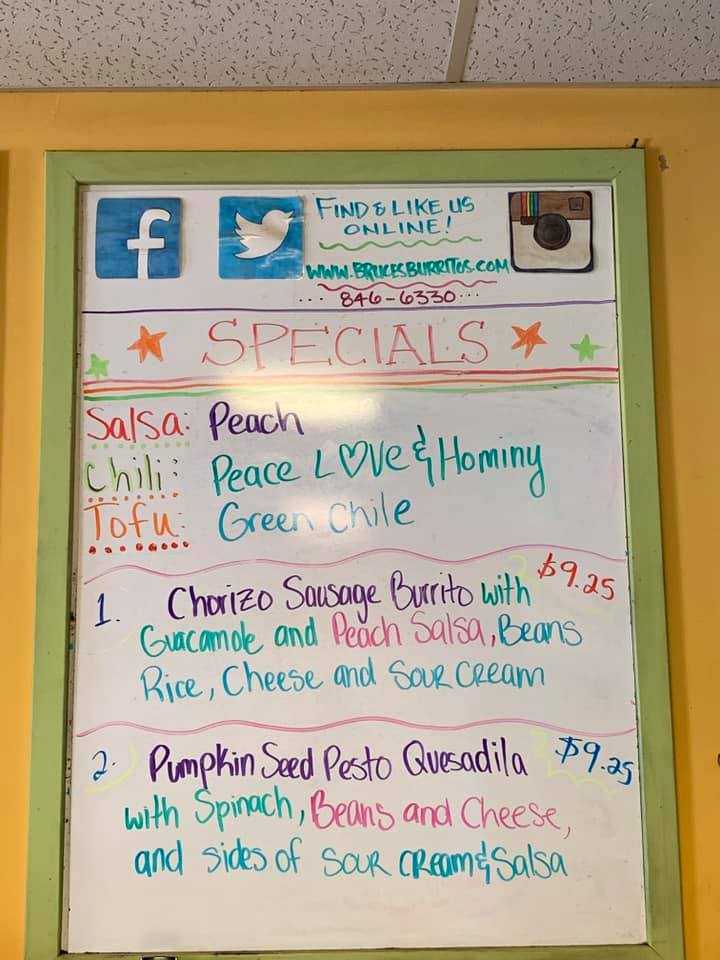 FIND & LIKE US
ONLINE!
WWW.BRUCESBURRITOS.COM
... 846-6330 ...
SPECIALS
Salsa: Peach
Chili: Peace LOVE & Hominy
Tofu: Green Chile
1. Chorizo Sausage Burrito with $9.25
Guacamole and Peach Salsa, Beans
Rice, Cheese and Sour Cream
2. Pumpkin Seed Pesto Quesadila $9.25
with Spinach, Beans and Cheese,
and sides of Sour Cream & Salsa